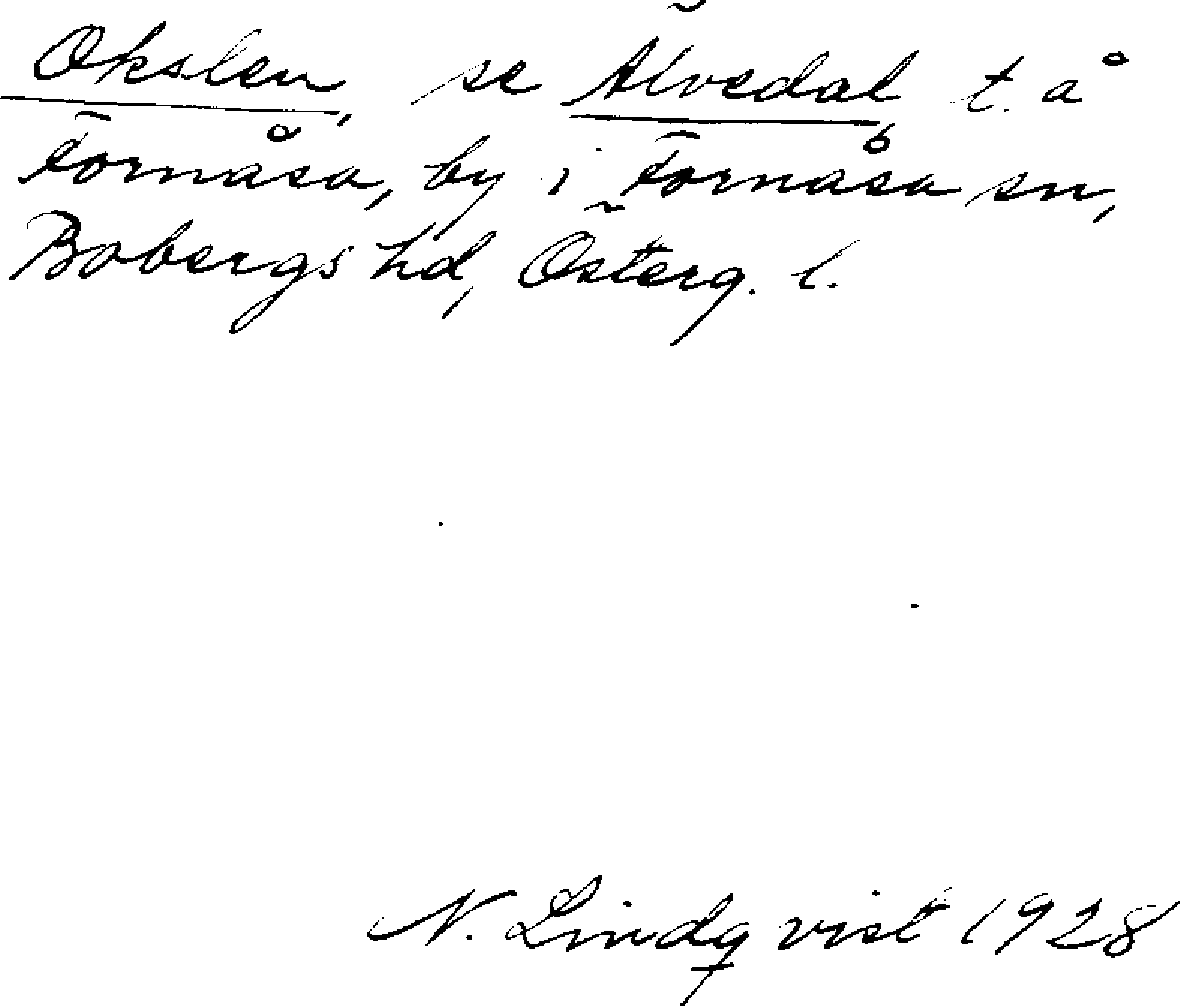 Okslen, se Älvedal t. å
Fornåsa, by i Fornåsa sn,
Bobergs hd, Österg. l.
N. Lindqvist 1928